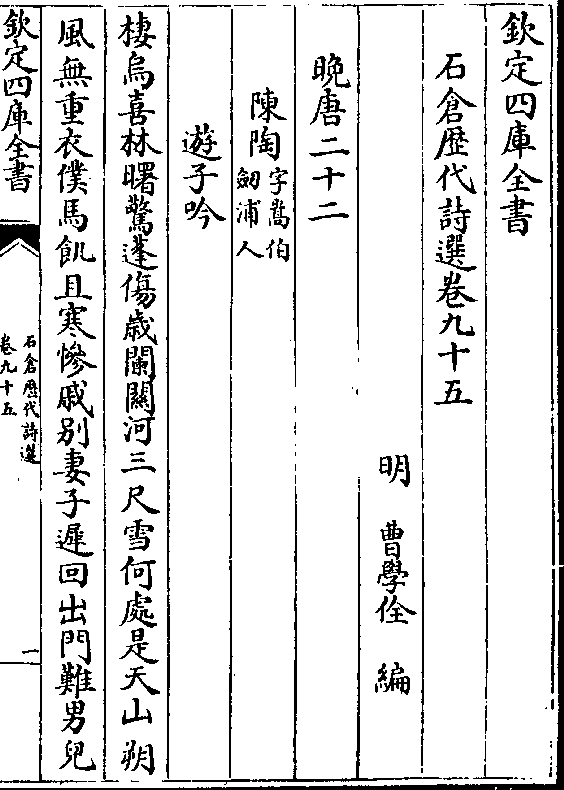 欽定四庫全書
石倉歴代詩選卷九十五
明 曹學佺 編
晚唐二十二
陳陶字嵩伯劒浦人
遊子吟
棲烏喜林曙驚蓬傷歳闌關河三尺雪何處是天山朔
風無重衣僕馬飢且寒慘戚别妻子遲回出門難男兒
欽定四庫全書
石倉歴代詩選
卷九十五
一